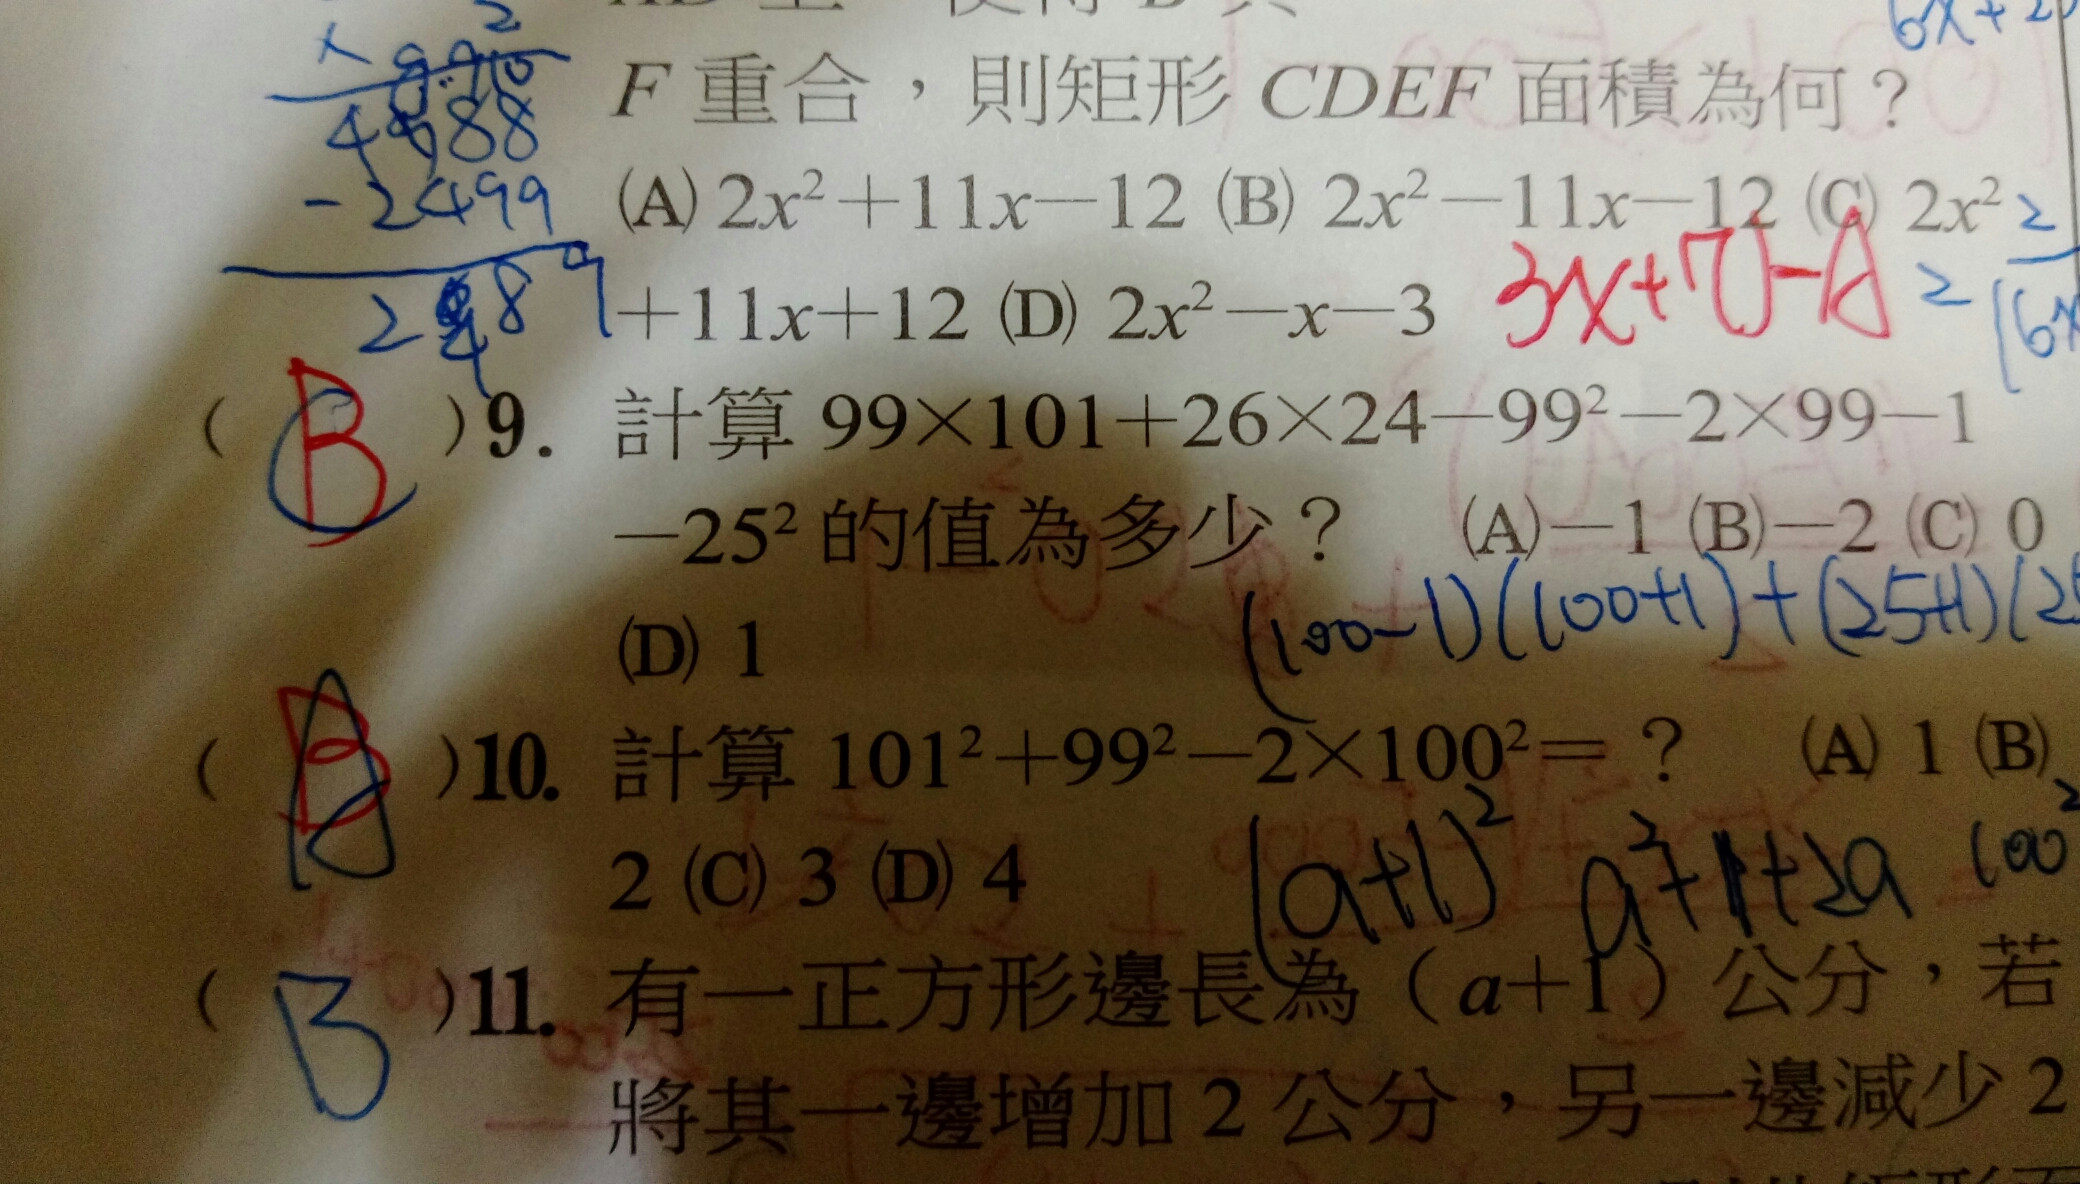 2
× 990
4988
-2499
2489
6x+2
F 重合，則矩形 CDEF 面積為何？
(A) 2x²+11x-12 (B) 2x²-11x-12 (C) 2x²
+11x+12 (D) 2x²-x-3
3x+7
2
2
16x
( B )9. 計算 99×101+26×24-99²-2×99-1
-25² 的值為多少？ (A)-1 (B)-2 (C) 0
(D) 1
(100-1)(100+1)+(25+1)(2
( B )10. 計算 101²+99²-2×100²=？ (A) 1 (B)
2 (C) 3 (D) 4
(a+1)² a²+1+2a 100²
( B )11. 有一正方形邊長為（a+1）公分，若
將其一邊增加 2 公分，另一邊減少 2